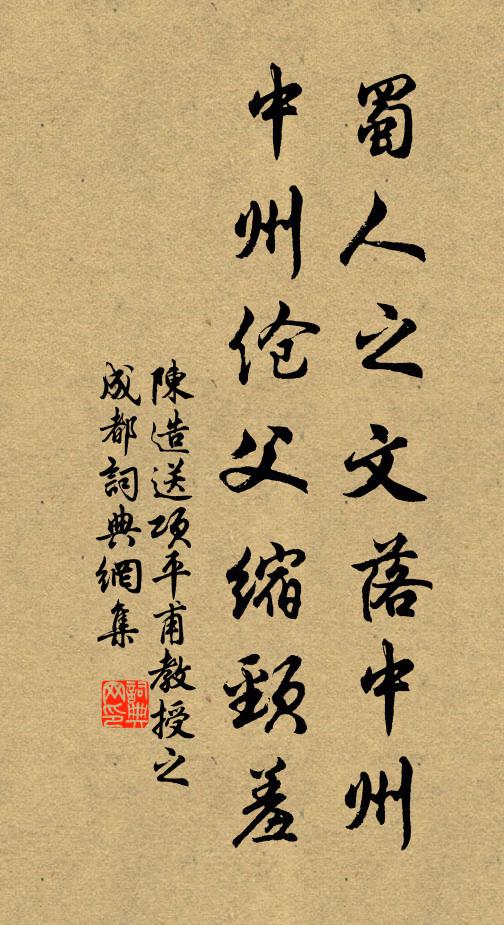 蜀人之文落中州
中州伧父縮頸羞
陳造送項平甫教授之
成都詞典網集
詞典
网印